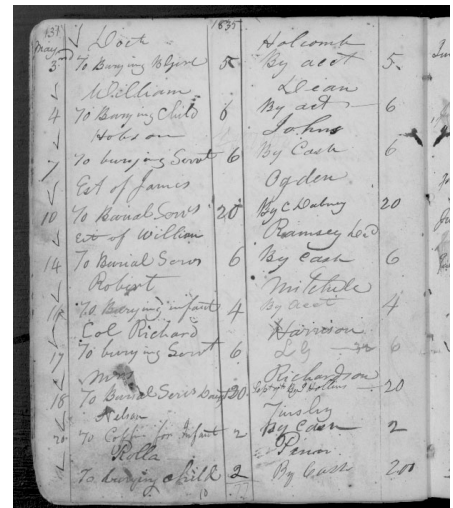 131 1835
Doct Holcomb
May 3 To Burying B Girl 5 By acct 5
William Dean
4 To Burying Child 6 By act 6
Hobson John
7 To burying Servt 6 By Cash 6
Est of James Ogden
10 To Burial Servs 20 By C Dabney 20
Est of William Ramsey Decd
14 To Burial Servs 6 By Cash 6
Robert Mitchele
To Burying infant 4 By acct 4
Col Richard Harrison
17 To burying Servt 6 6
Richardson
18 To Burial Servs 20 20
Nelson Tinsley
20 To Coffin for Infant 2 By Cash 2
Rolla
To burying Child 2 By Cash